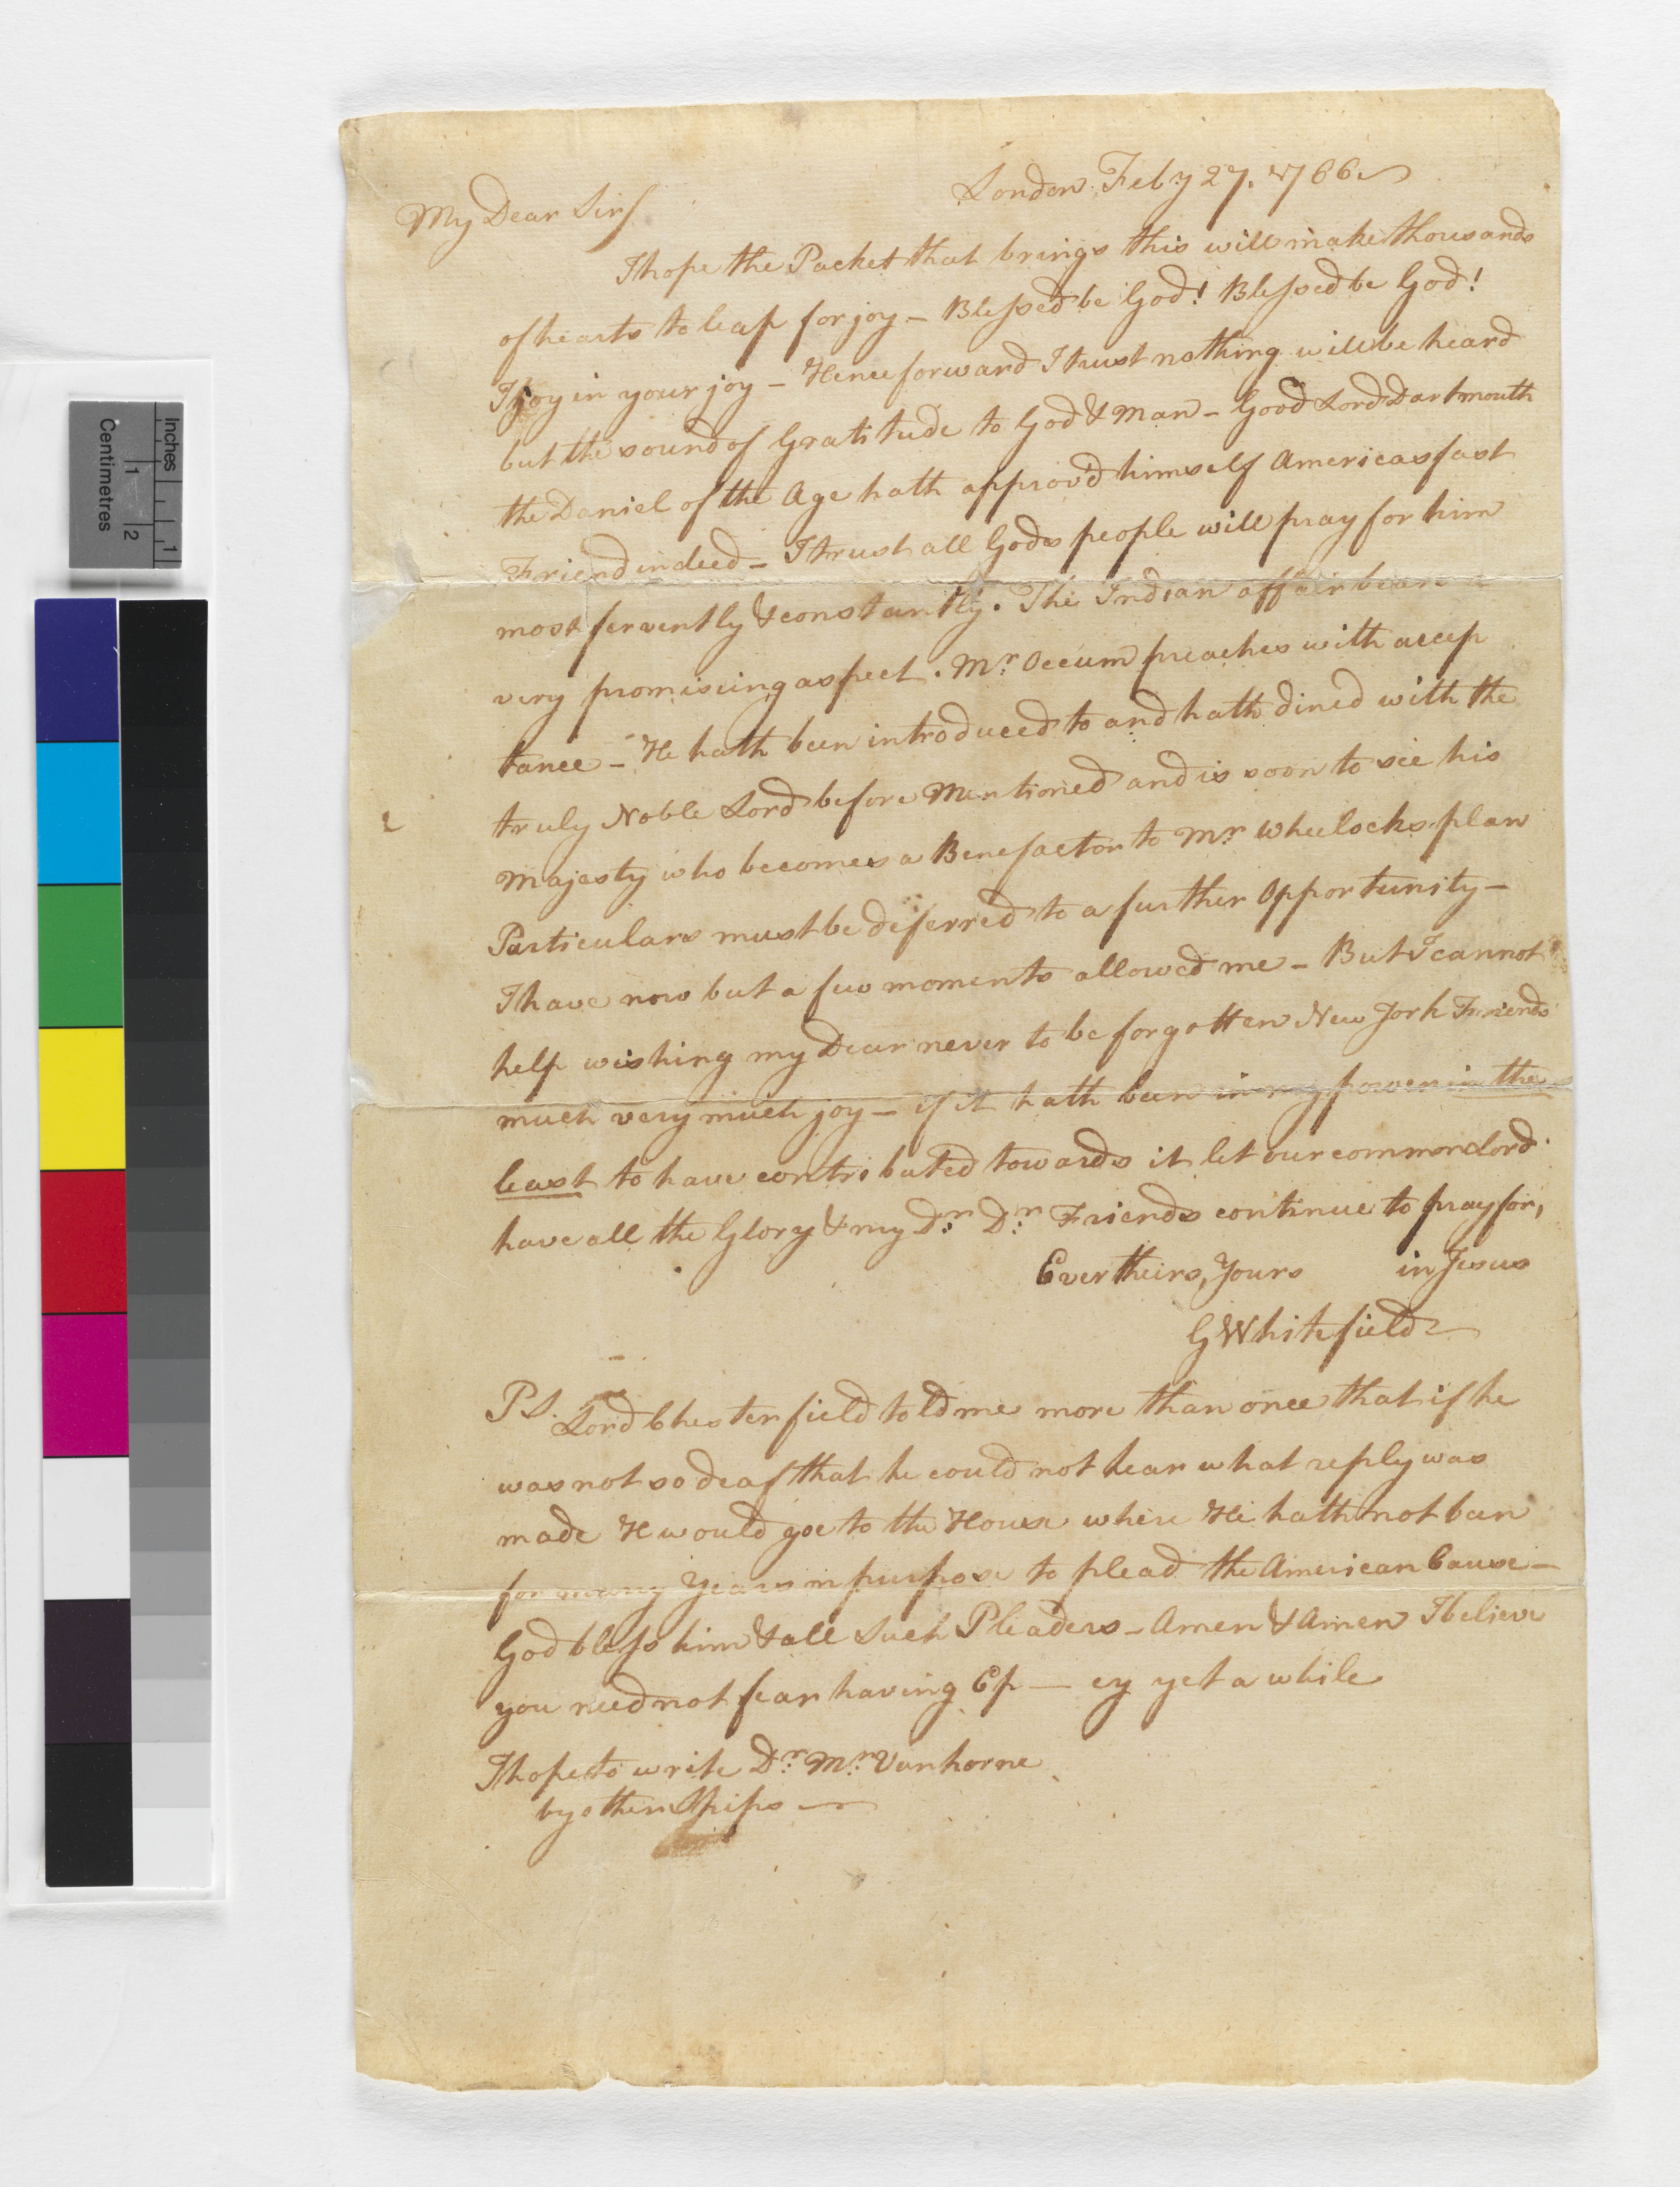 London Feby 27. 1766.
My Dear Sir/
I hope the Packet that brings this will make thousands
of hearts to leap for joy – Blessed be God! Blessed be God!
I joy in your joy – Henceforward I trust nothing will be heard
but the sound of Gratitude to God & Man – Good Lord Dartmouth
the Daniel of the Age hath approv'd himself Americas fast
Friend indeed – I trust all Gods people will pray for him
most fervently & constantly. The Indian affair bears a
very promiscing aspect. Mr. Occum preaches with accep
tance – He hath been introduced to and hath dined with the
truly Noble Lord before Mentioned and is soon to see his
Majesty who becomes a Benefactor to Mr. Wheelocks plan
Particulars must be deferred to a further Opportunity –
I have now but a few moments allowed me – But I cannot
help wishing my Dear never to be forgotten New York Friends
much very much joy – if it hath been in my power in the
least to have contributed towards it let our common Lord
have all the Glory & my Dr. Dr. Friends continue to pray for,
Ever theirs, Yours in Jesus
G Whitefield
PS. Lord Chesterfield told me more than once that if he
was not so deaf that he could not hear what reply was
made H would goe to the House where He hath not been
for many Years on purpose to plead the American Cause –
God bless him & all Such Pleaders – Amen & Amen I believe
you need not fear having Ep — cy yet a while
I hope to write Dr. Mr. Vanhorne
by other Ships —
Inches
1
Centimetres
1
2